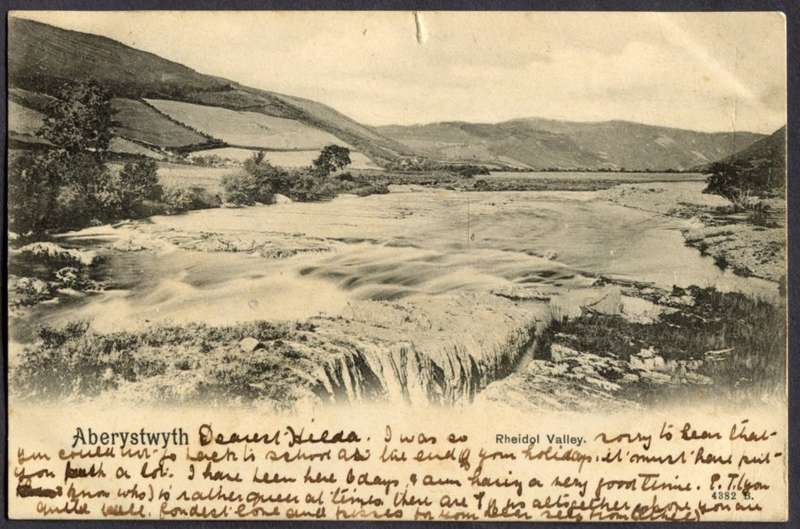 Aberystwyth Dearest Hilda. I was so Rheidol Valley. sorry to hear that
you could not go back to school at the end of your holidays, it must have put
you back a lot. I have been here 6 days & am having a very good time. P.T. (you
know who) is rather queer at times, there are of us altogether, hope you are
4382 B.
quite well. Fondest love and kisses to from